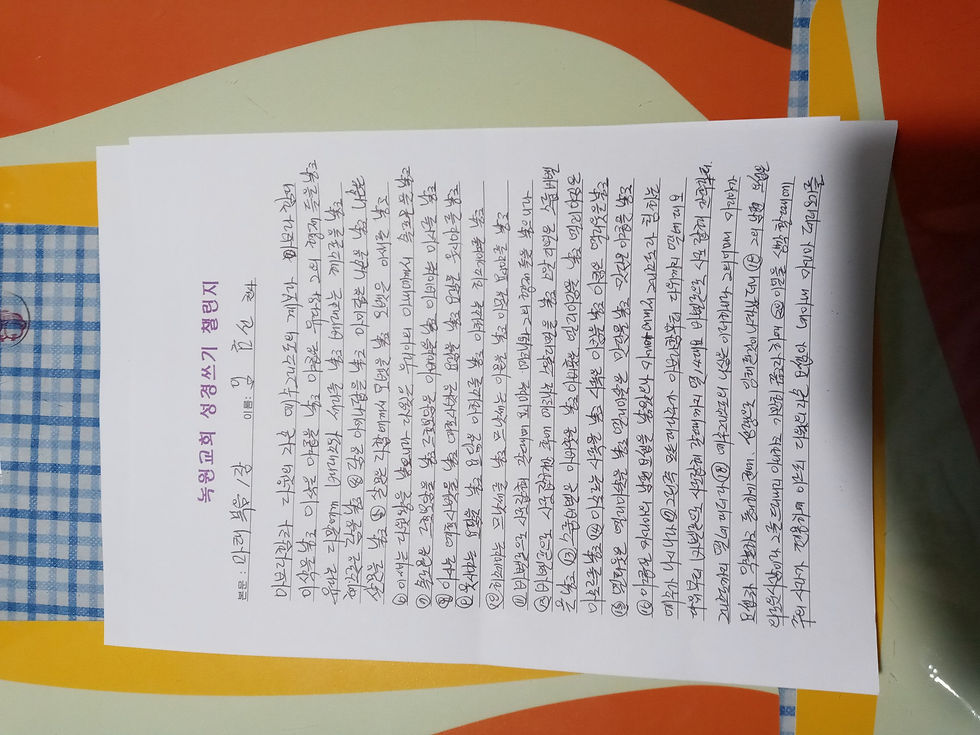 녹원교회 성경쓰기 챌린지
본문 : 마태복음 1장 이름 :
아브라함과 다윗의 자손 예수그리스도의 계보라 아브라함이
이삭을 낳고 이삭은 야곱을 낳고 야곱은 유다와 그의 형제들을 낳고
유다는 다말에게서 베레스와 세라를 낳고 베레스는 헤스론을 낳고
헤스론은 람을 낳고 ④ 람은 아미나답을 낳고 아미나답은 나손을 낳고 나손은
살몬을 낳고 ⑤ 살몬은 라합에게서 오벳을 낳고 오벳은 이새를 낳고
⑥ 이새는 다윗왕을 낳으니라 다윗은 우리야의 아내에게서 솔로몬을 낳고
⑦ 솔로몬은 르호보암을 낳고 르호보암은 아비야를 낳고 아비야는 아사를 낳고
⑧ 아사는 여호사밧을 낳고 여호사밧은 요람을 낳고 요람은 웃시야를 낳고
⑨ 웃시야는 요담을 낳고 요담은 아하스를 낳고 아하스는 히스기야를 낳고
⑩ 히스기야는 므낫세를 낳고 므낫세는 아몬을 낳고 아몬은 요시야를 낳고
⑪ 바벨론으로 사로잡혀 갈때에 요시야는 여고냐와 그의 형제들을 낳으니라
⑫ 바벨론으로 사로잡혀간 후에 여고냐는 스알디엘을 낳고 스알디엘은 스룹바벨
을 낳고 ⑬ 스룹바벨은 아비훗을 낳고 아비훗은 엘리아김을 낳고 엘리아김은
아소르를 낳고 ⑭ 아소르는 사독을 낳고 사독은 아킴을 낳고 아킴은 엘리웃을 낳고
⑮ 엘리웃은 엘르아살을 낳고 엘르아살은 맛단을 낳고 맛단은 야곱을 낳고
⑯ 야곱은 마리아의 남편 요셉을 낳았으니 마리아에게서 그리스도라 칭하는
예수가 나시니라 ⑰ 그런즉 모든 대수가 아브라함부터 다윗까지 열네 대요
다윗부터 바벨론으로 사로잡혀 갈때까지 열네대요 바벨론으로 사로잡혀간 후부터
그리스도까지 열네 대더라 ⑱ 예수그리스도의 나심은 이러하니라 그의 어머니 마리아가
요셉과 약혼하고 동거하기전에 성령으로 잉태된것이 나타났더니 ⑲ 그의 남편 요셉은
의로운 사람이라 그를 드러내지 아니하고 가만히 끊고자 하여 ⑳ 이 일을 생각할 때에
주의 사자가 현몽하여 이르되 다윗의 자손 요셉아 네 아내 마리아 데려오기를